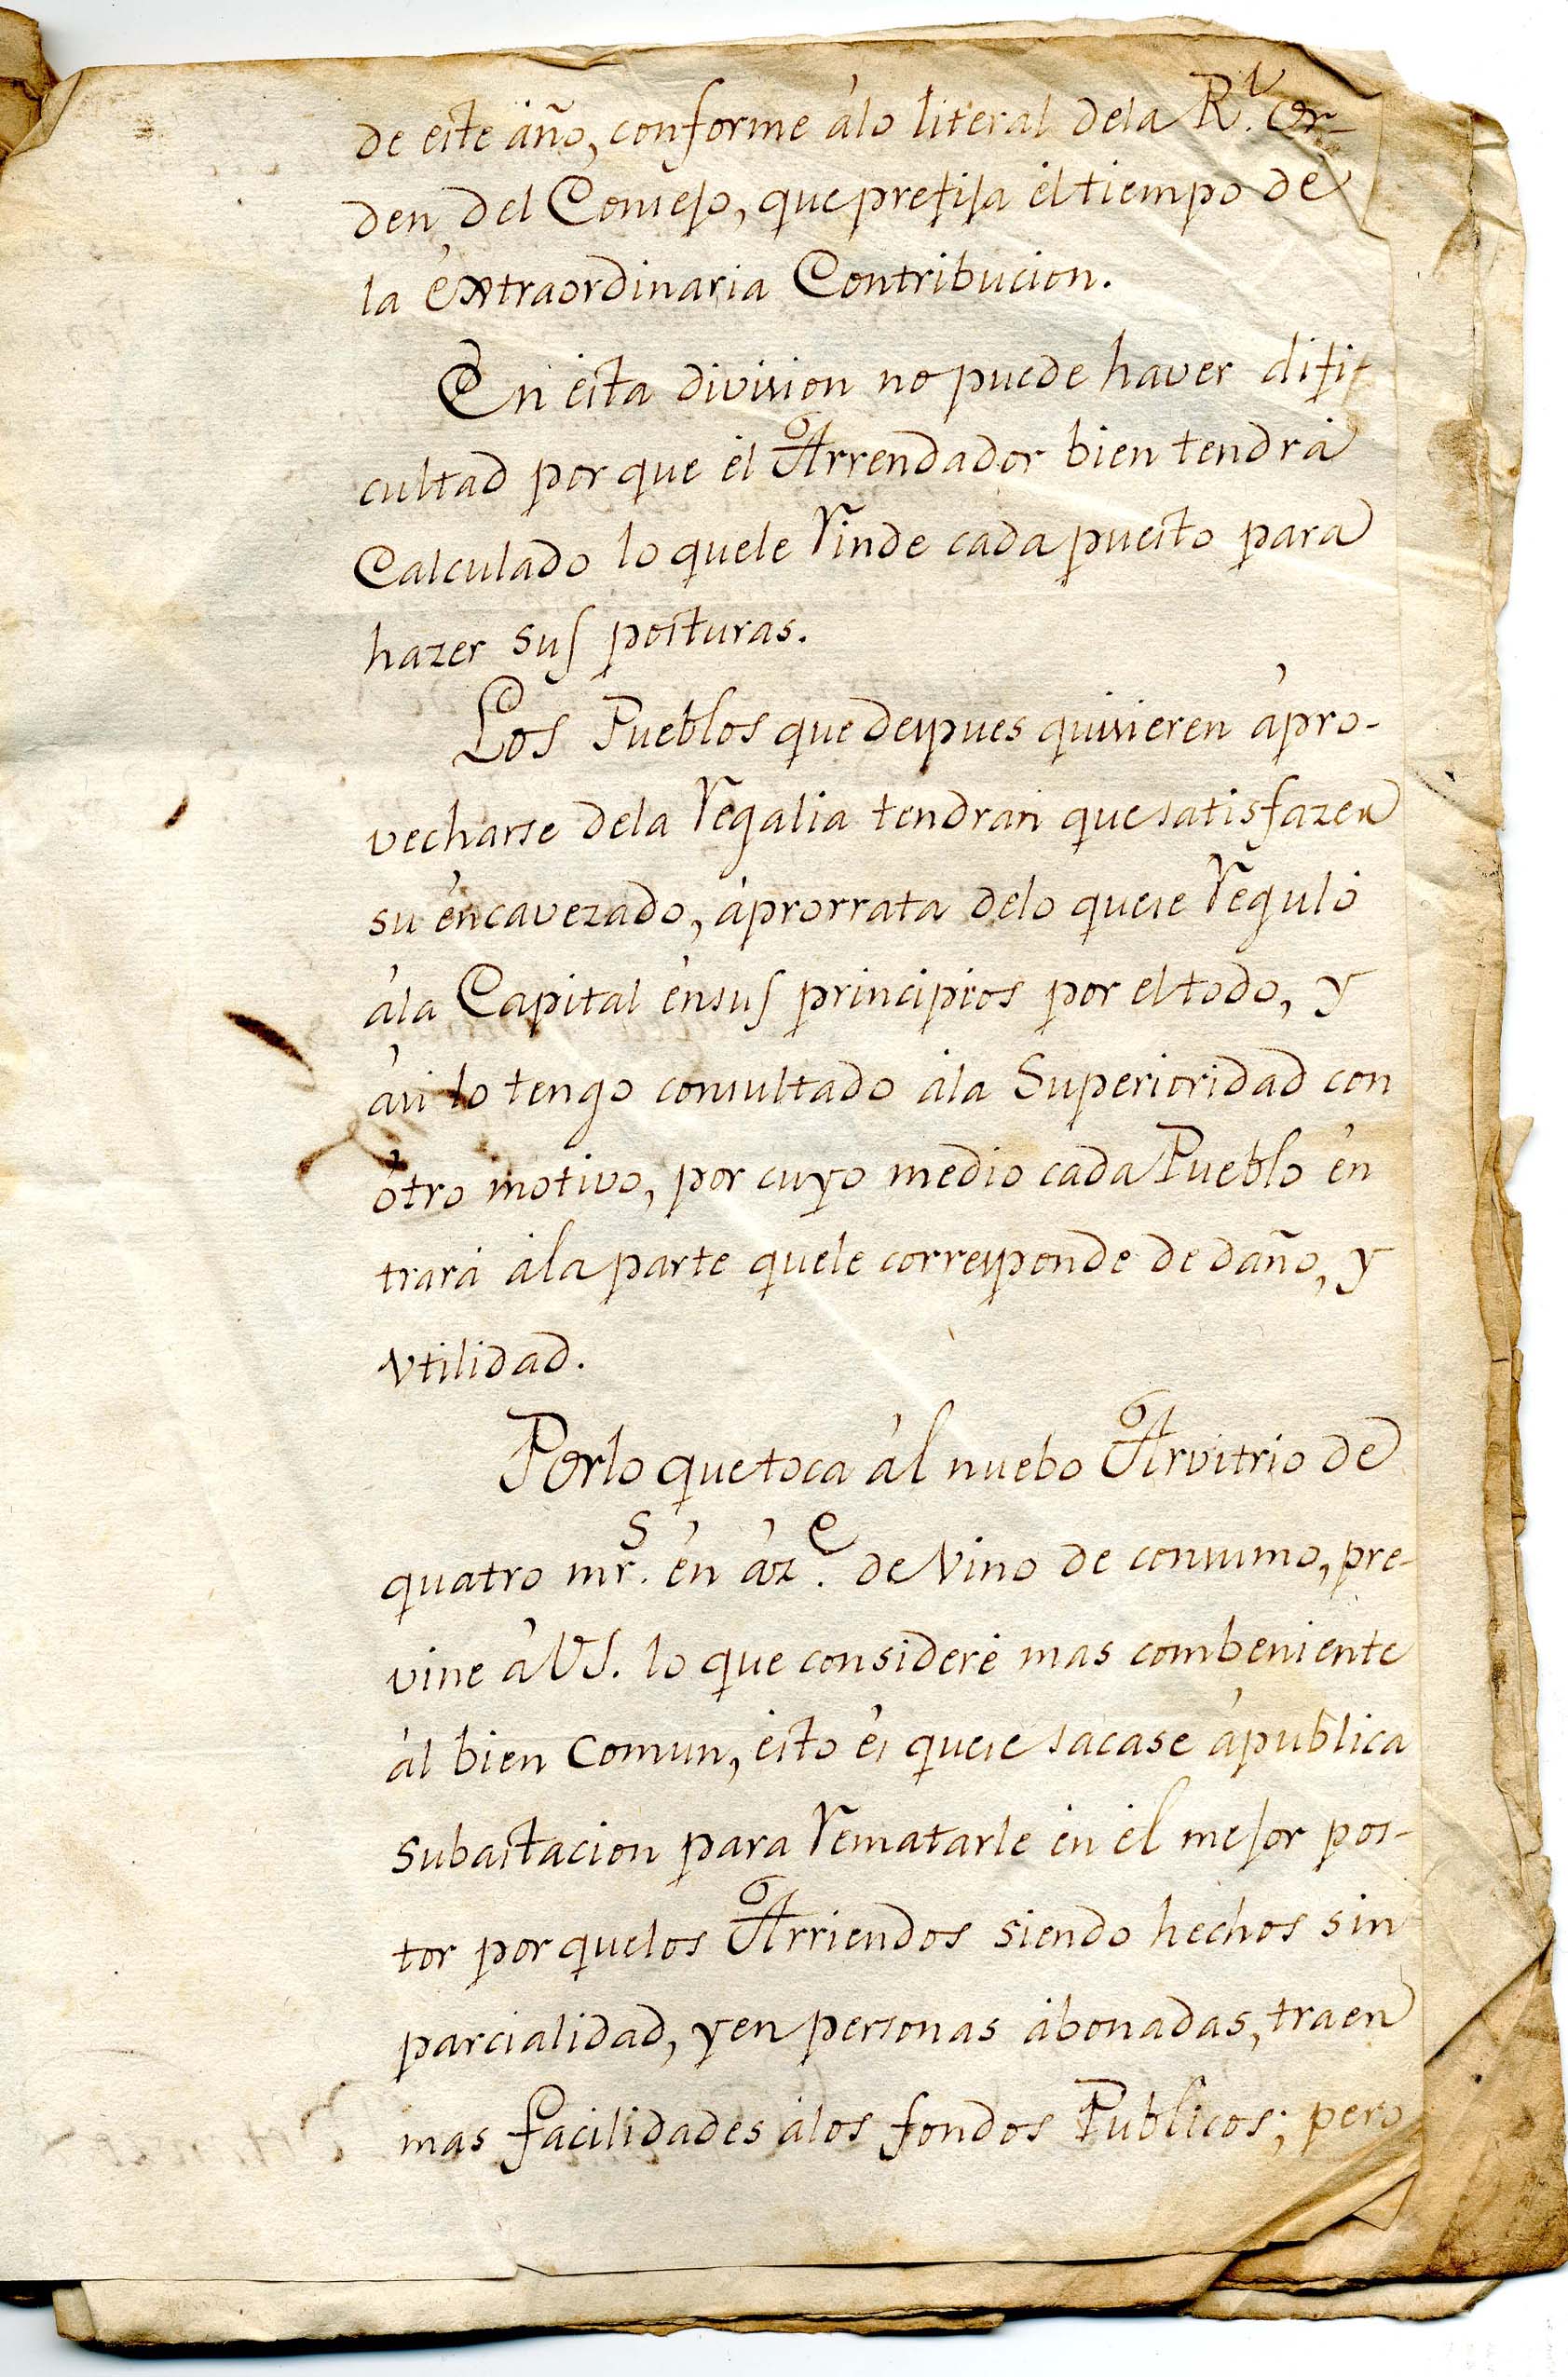 de este año, conforme álo literal dela R.l Or-
den del Consejo, que prefija el tiempo de
la extraordinaria Contribucion.
En ésta division no puede haver difi-
cultad por que él Arrendador bien tendrá
Calculado lo quele rinde cada puesto para
hazer sus posturas.
Los Pueblos que despues quisieren ápro-
vecharse dela regalia tendrán que satisfazer
su éncavezado, áprorrata delo quese reguló
ála Capital énsus principios por el todo, y
ási lo tengo consultado ála Superioridad con
ótro motivo, por cuyo medio cada Pueblo én
trará ála parte quele corresponde de daño, y
vtilidad.
Porlo que toca ál nuebo Arvitrio de
quatro mr.s én áz.e de Vino de consumo, pre-
vine áVS. lo que consideré mas combeniente
ál bien Comun, ésto és quese sacase ápublica
Subastacion para rematarle én él mejor pos-
tor por quelos Arriendos siendo hechos sin
parcialidad, yen personas ábonadas, traen
mas facilidades álos fondos Publicos; pero